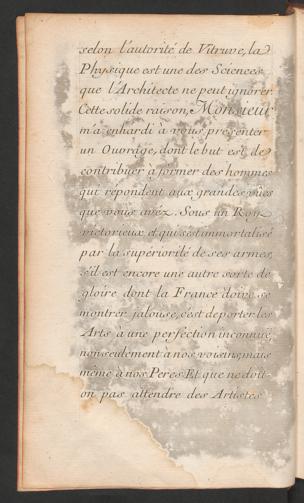 selon l'autorité de Vitruve, la
Physique est une des Sciences
que l'Architecte ne peut ignorer.
Cette solide raison, Monsieur
m'a enhardi à vous présenter
un Ouvrage, dont le but est de
contribuer à former des hommes
qui répondent aux grandes vües
que vous avéz. Sous un Roy
victorieux et qui s'est immortalisé
par la superiorité de ses armes,
s'il est encore une autre sorte de
gloire dont la France doive se
montrer jalouse, c'est de porter les
Arts à une perféction inconnuë,
non seulement à nos voisins, mais
même à nos Peres. Et que ne doit-
on pas attendre des Artistes